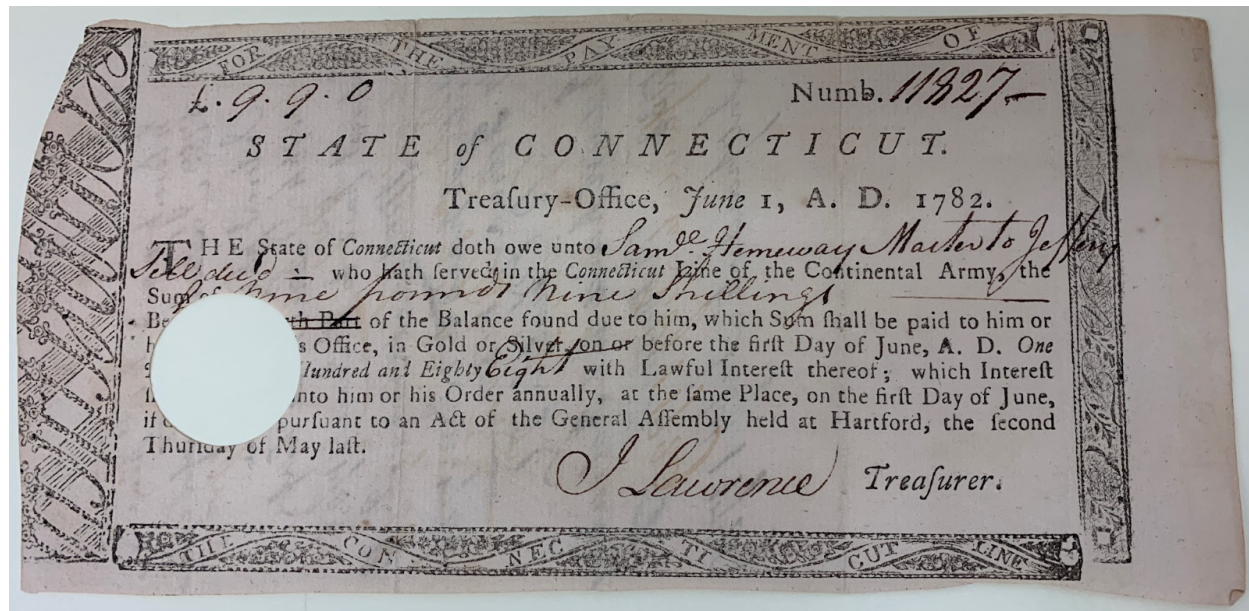 FOR THE PAYMENT OF
£.9.9.0 Numb. 11827-
STATE of CONNECTICUT.
Treaſury-Office, June 1, A. D. 1782.
THE State of Connecticut doth owe unto Samˡˡ Hemeway Master to Jeffery
who hath ſerved in the Connecticut Line of the Continental Army, the
Sum of nine pounds nine Shillings
Be th Part of the Balance found due to him, which Sum ſhall be paid to him or
h s Office, in Gold or Silver, on or before the firſt Day of June, A. D. One
Hundred and Eighty Eight with Lawful Intereſt thereof; which Intereſt
nto him or his Order annually, at the ſame Place, on the firſt Day of June,
if purſuant to an Act of the General Aſſembly held at Hartford, the ſecond
Thurſday of May laſt.
J Lawrence Treaſurer.
THE CONNECTICUT LINE